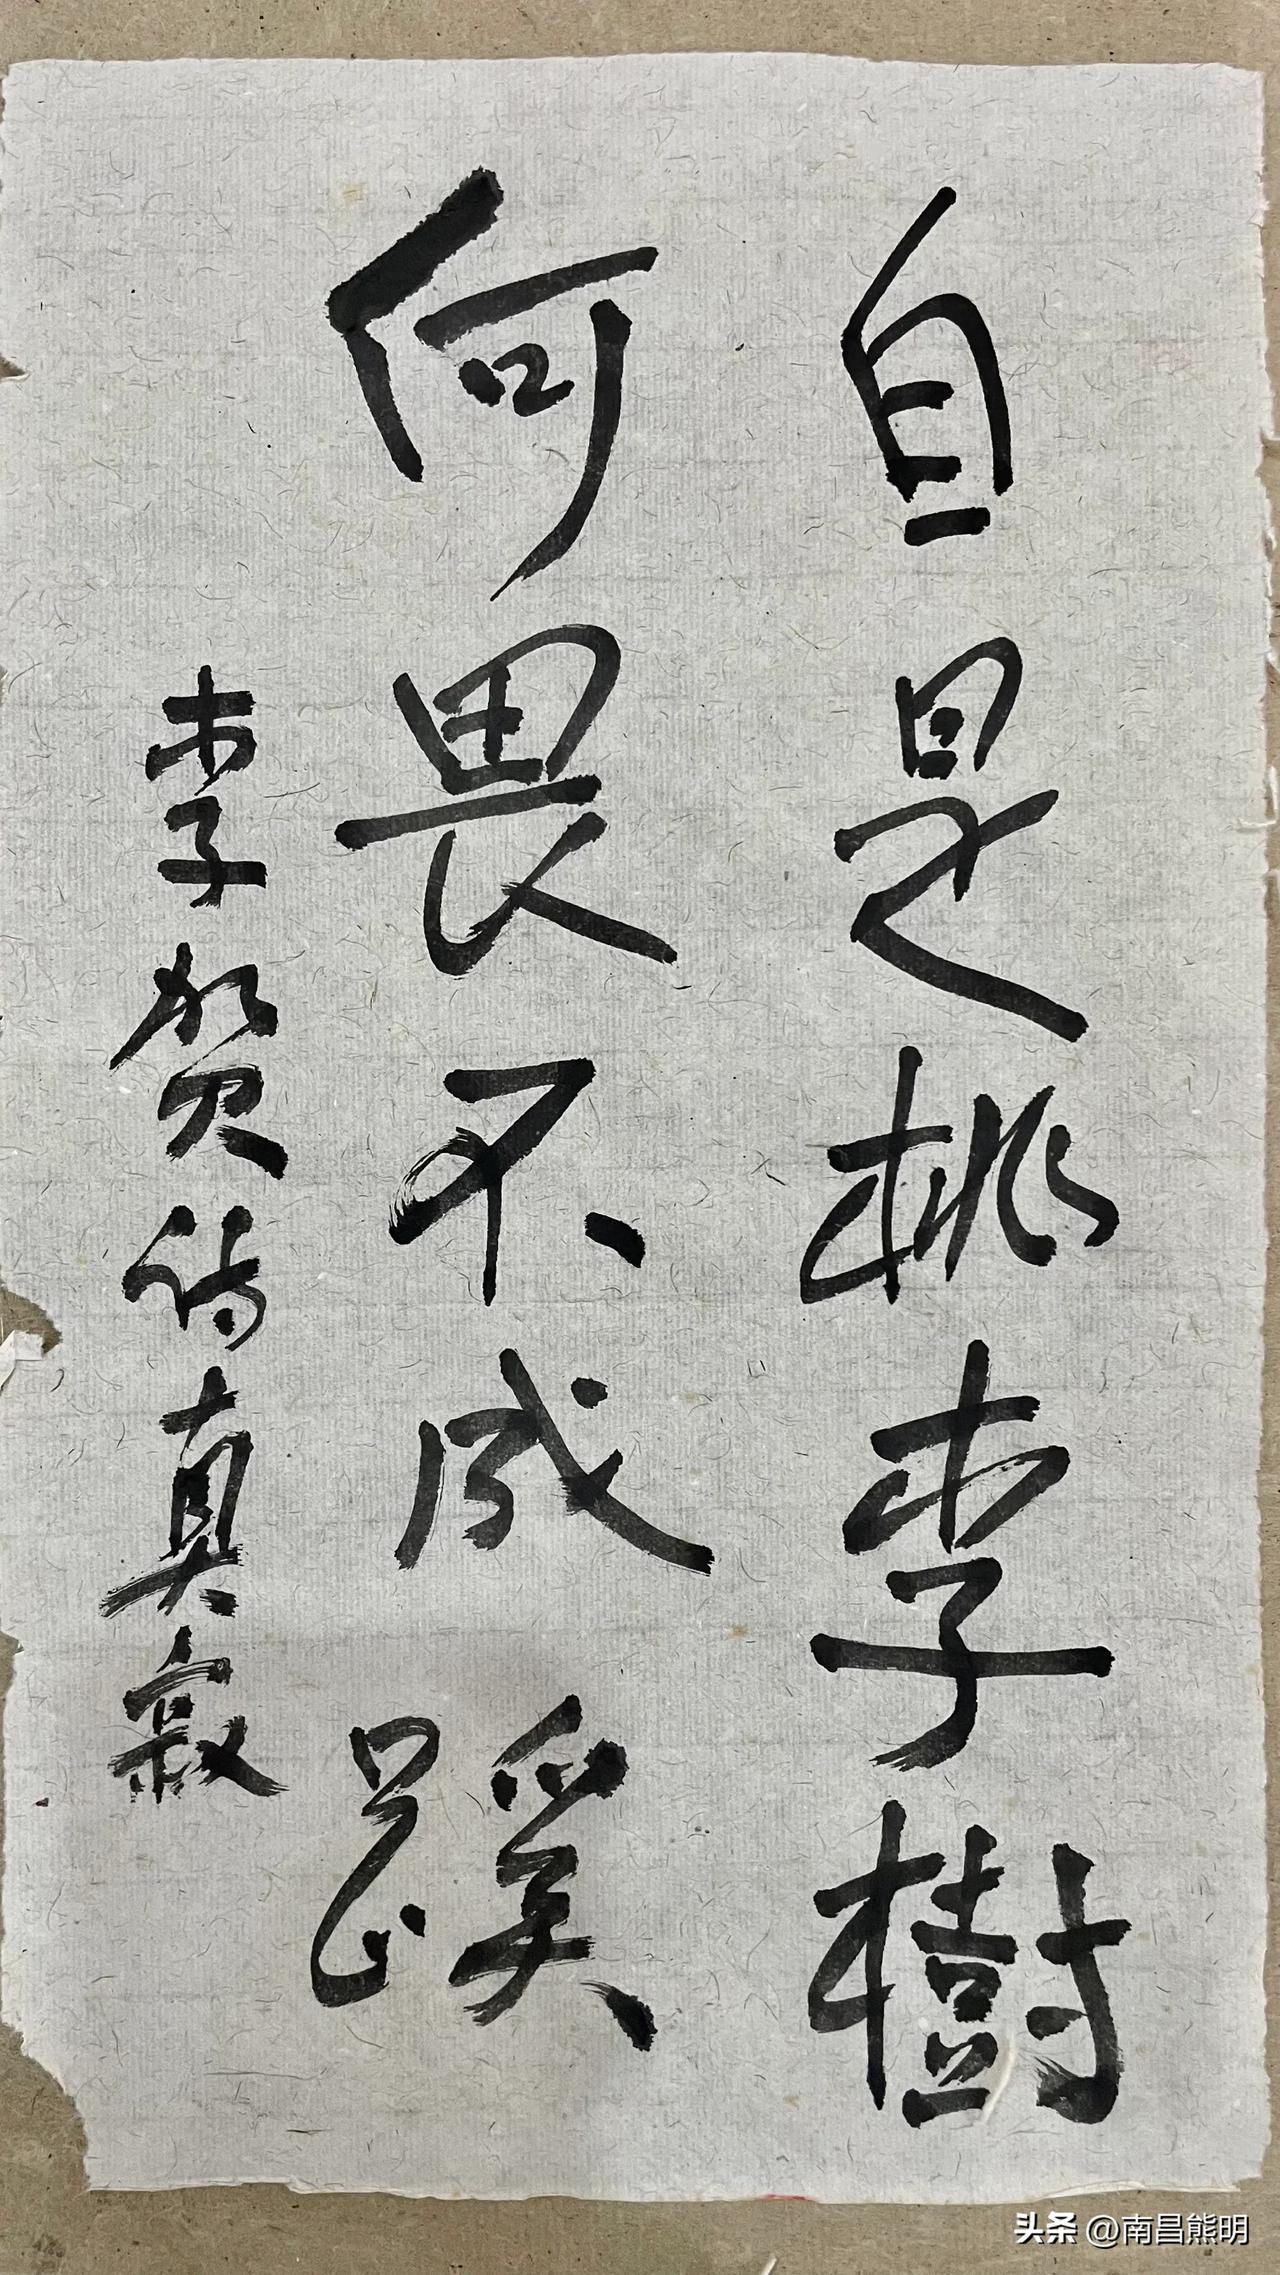 自是桃李樹
何畏不成蹊
李賀詩真寂
头条 @南昌熊明